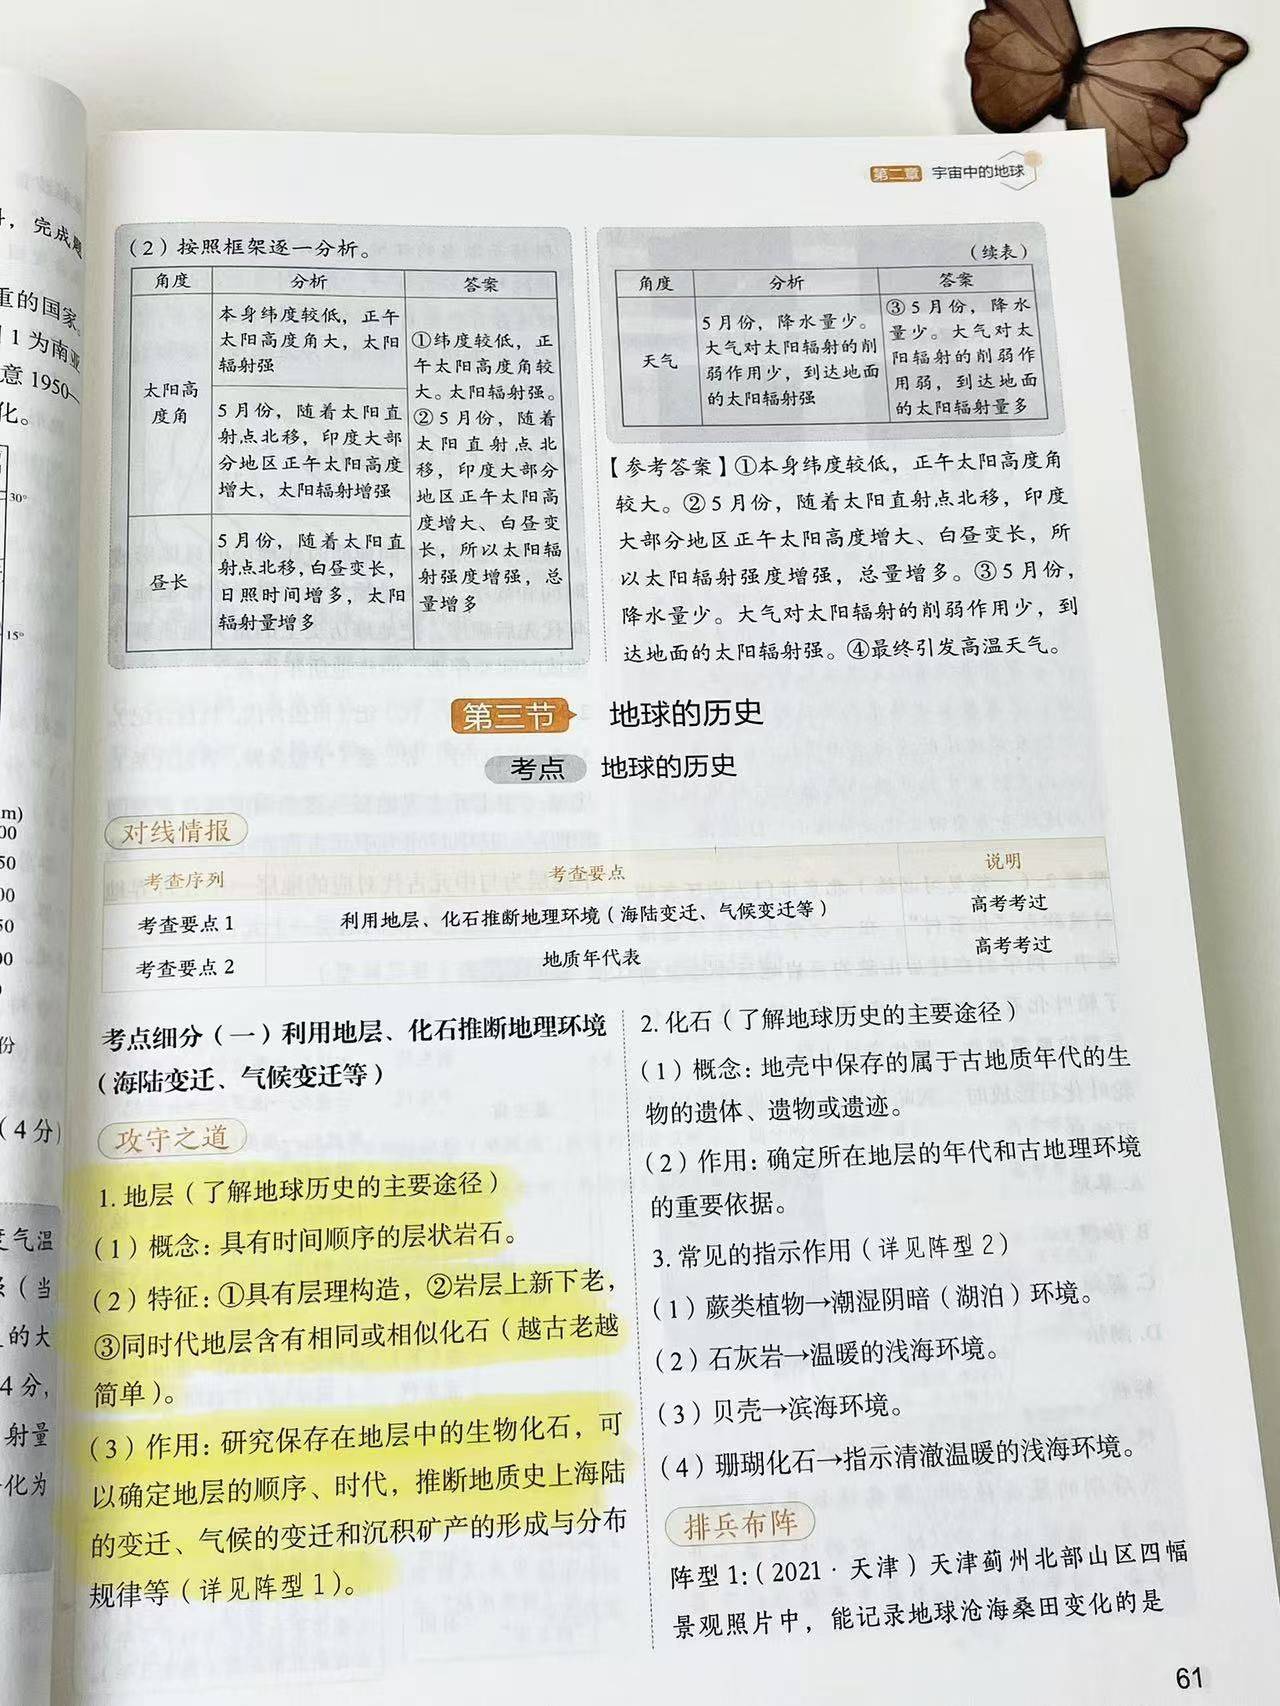 第二章 宇宙中的地球
，完成题
重的国家。
1 为南亚
意 1950—
化。
30°
15°
m)
00
50
00
50
00
0
份
（4分）
度气温
（当
的大
4分，
射量
化为
（2）按照框架逐一分析。
角度 分析 答案
太阳高
度角
本身纬度较低，正午
太阳高度角大，太阳
辐射强
5月份，随着太阳直
射点北移，印度大部
分地区正午太阳高度
增大，太阳辐射增强
昼长
5月份，随着太阳直
射点北移，白昼变长，
日照时间增多，太阳
辐射量增多
①纬度较低，正
午太阳高度角较
大。太阳辐射强。
②5月份，随着
太阳直射点北
移，印度大部分
地区正午太阳高
度增大、白昼变
长，所以太阳辐
射强度增强，总
量增多
（续表）
角度 分析 答案
天气
5月份，降水量少。
大气对太阳辐射的削
弱作用少，到达地面
的太阳辐射强
③5月份，降水
量少。大气对太
阳辐射的削弱作
用弱，到达地面
的太阳辐射量多
【参考答案】①本身纬度较低，正午太阳高度角
较大。②5月份，随着太阳直射点北移，印度
大部分地区正午太阳高度增大、白昼变长，所
以太阳辐射强度增强，总量增多。③5月份，
降水量少。大气对太阳辐射的削弱作用少，到
达地面的太阳辐射强。④最终引发高温天气。
第三节 地球的历史
考点 地球的历史
对线情报
考查序列 考查要点 说明
考查要点1 利用地层、化石推断地理环境（海陆变迁、气候变迁等） 高考考过
考查要点2 地质年代表 高考考过
考点细分（一）利用地层、化石推断地理环境
（海陆变迁、气候变迁等）
攻守之道
1. 地层（了解地球历史的主要途径）
（1）概念：具有时间顺序的层状岩石。
（2）特征：①具有层理构造，②岩层上新下老，
③同时代地层含有相同或相似化石（越古老越
简单）。
（3）作用：研究保存在地层中的生物化石，可
以确定地层的顺序、时代，推断地质史上海陆
的变迁、气候的变迁和沉积矿产的形成与分布
规律等（详见阵型1）。
2. 化石（了解地球历史的主要途径）
（1）概念：地壳中保存的属于古地质年代的生
物的遗体、遗物或遗迹。
（2）作用：确定所在地层的年代和古地理环境
的重要依据。
3. 常见的指示作用（详见阵型2）
（1）蕨类植物→潮湿阴暗（湖泊）环境。
（2）石灰岩→温暖的浅海环境。
（3）贝壳→滨海环境。
（4）珊瑚化石→指示清澈温暖的浅海环境。
排兵布阵
阵型1:（2021·天津）天津蓟州北部山区四幅
景观照片中，能记录地球沧海桑田变化的是
61